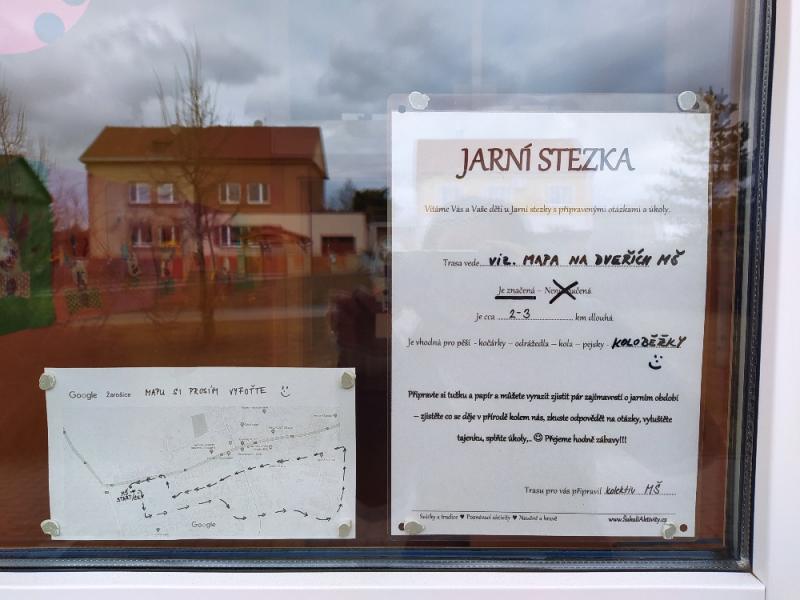 JARNÍ STEZKA
Vítáme Vás a Vaše děti u Jarní stezky s připravenými otázkami a úkoly.
Trasa vede viz. MAPA NA DVEŘÍCH MŠ
Je značená – Není značená
Je cca 2-3 km dlouhá
Je vhodná pro pěší – kočárky – odrážedla – kola – pejsky – KOLOBĚŽKY
Připravte si tužku a papír a můžete vyrazit zjistit pár zajímavostí o jarním období
– zjistěte co se děje v přírodě kolem nás, zkuste odpovědět na otázky, vyluštěte
tajenku, splňte úkoly,.. ☺ Přejeme hodně zábavy!!!
Trasu pro vás připravil kolektiv MŠ
Svátky a tradice ♥ Poznávací aktivity ♥ Naučně a hravě
www.SakaliAktivity.cz
Google Žarošice MAPU SI PROSÍM VYFOŤTE
MŠ
START/CÍL
Google